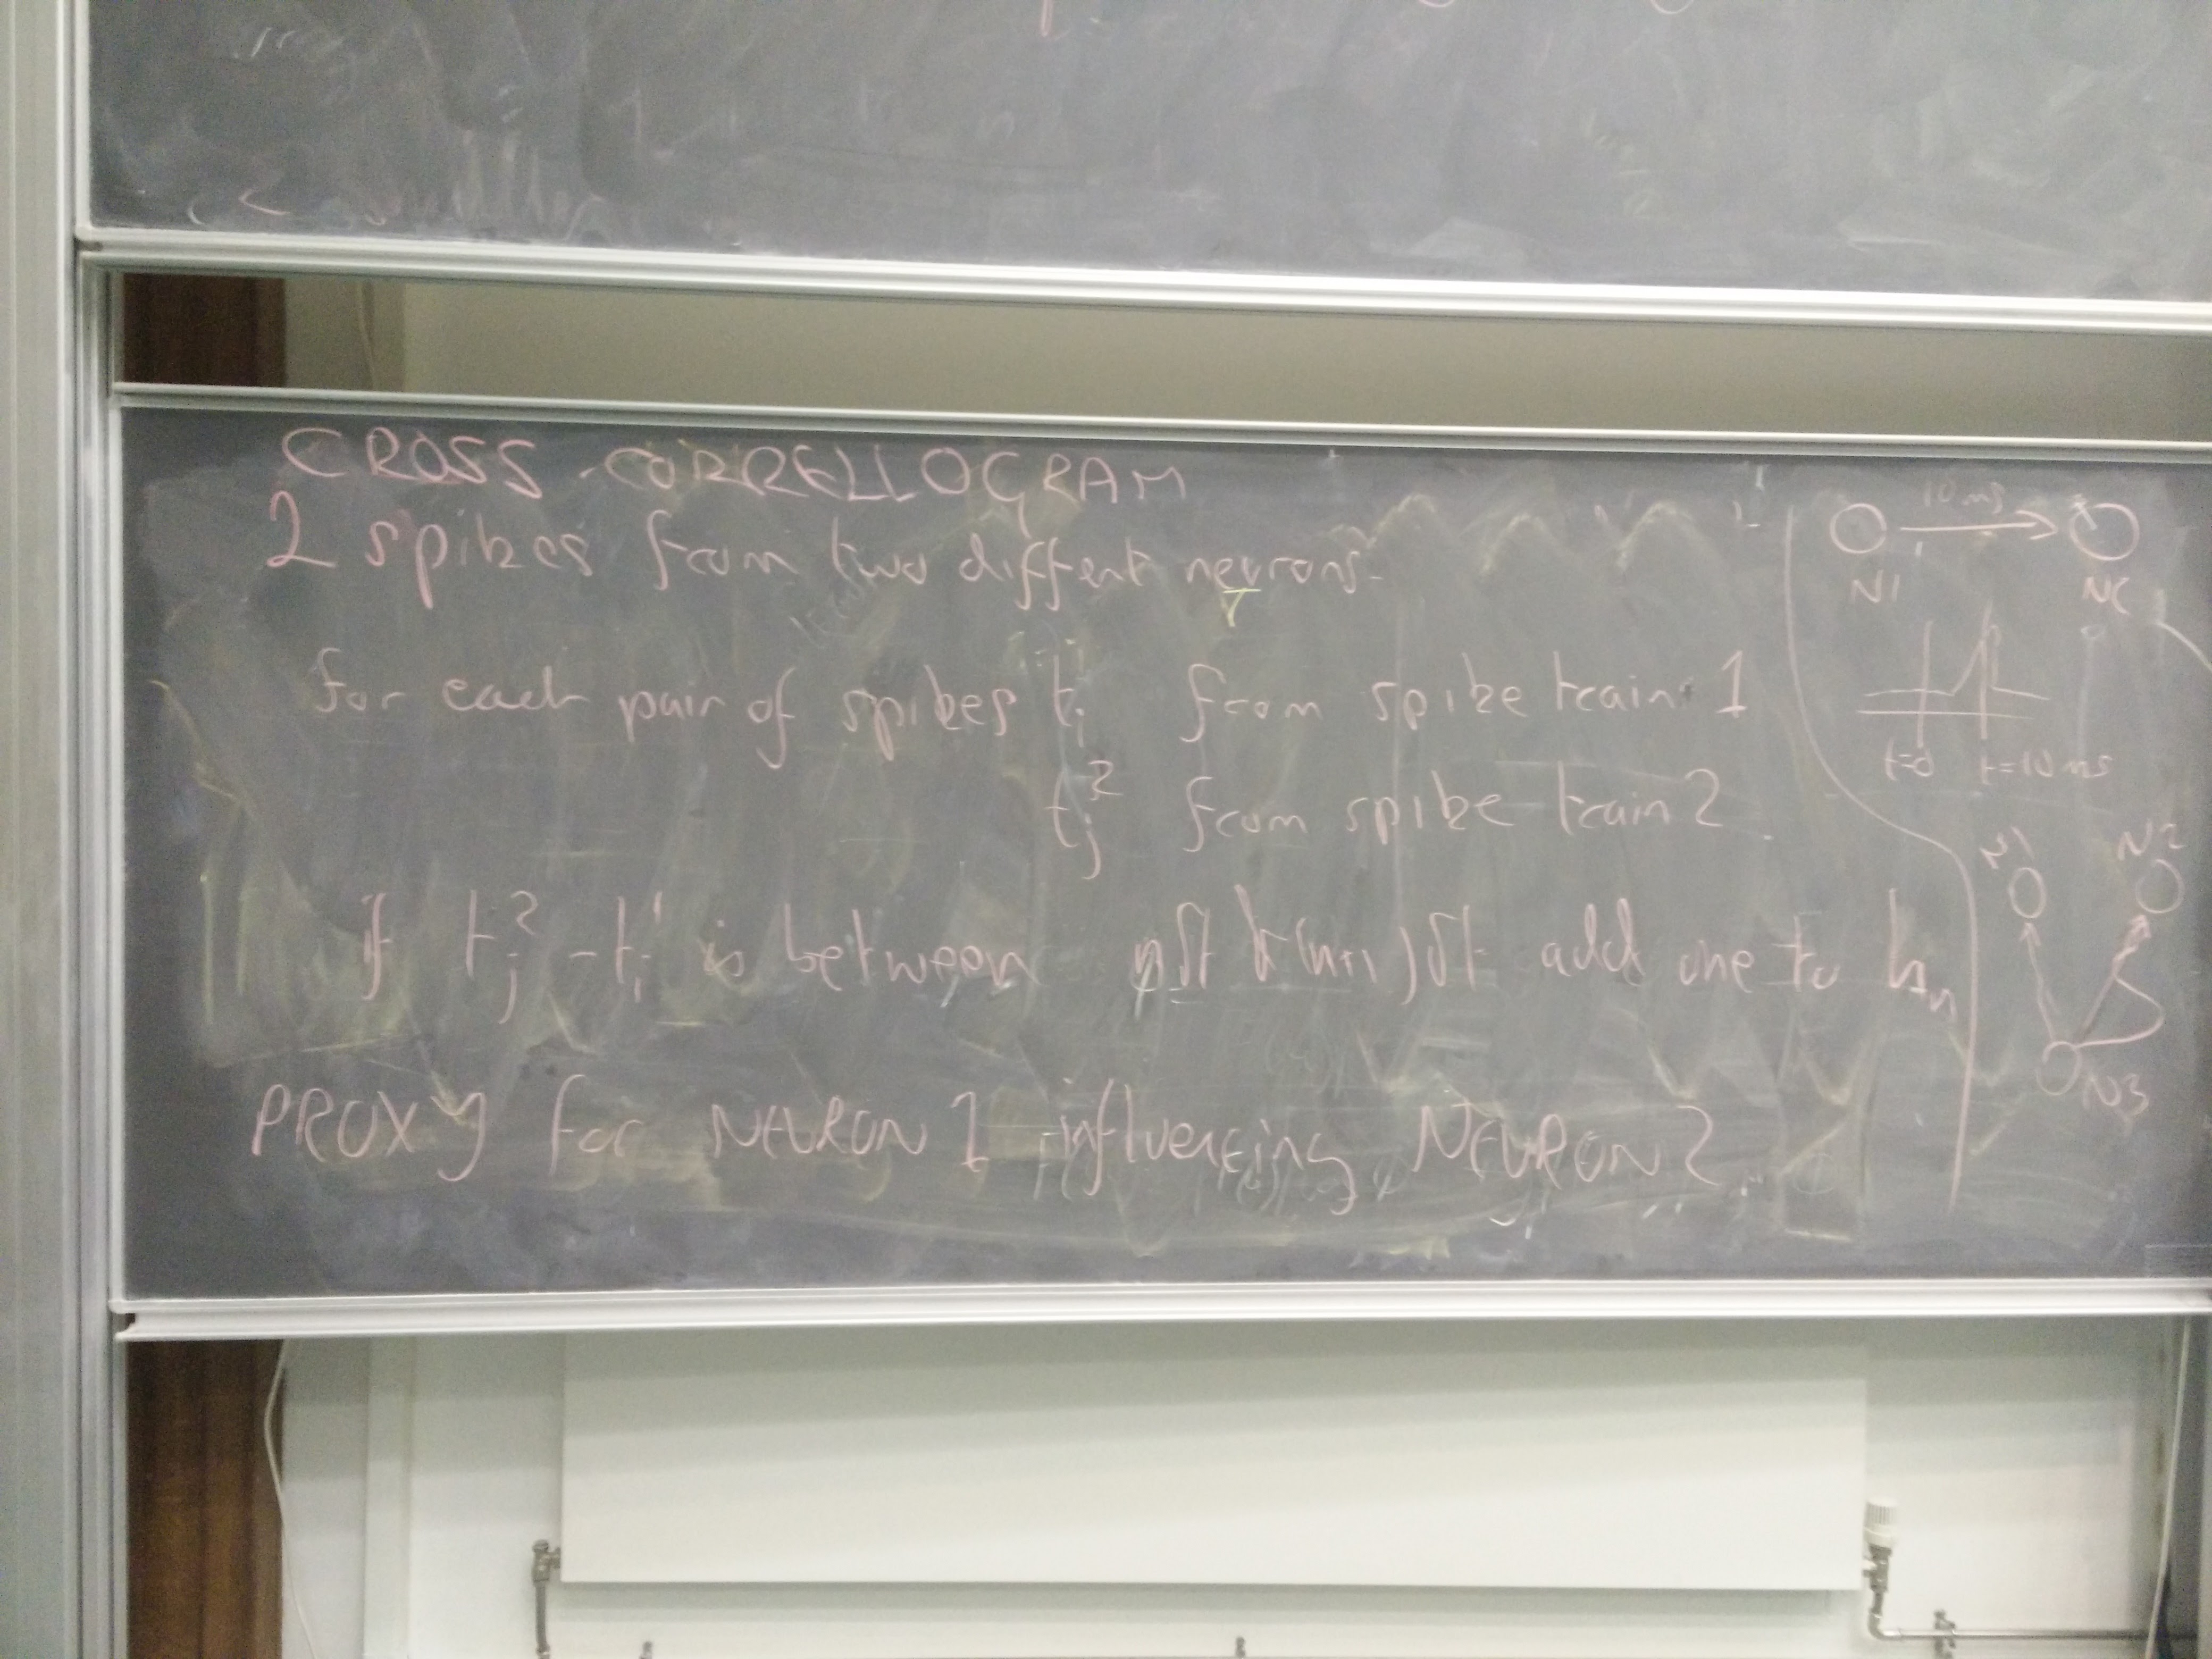 CROSS-CORRELLOGRAM
2 spikes from two diffent neurons.
for each pair of spikes tᵢ¹ from spike train 1
tⱼ² from spike train 2
if tⱼ² - tᵢ¹ is between nδt & (n+1)δt add one to hₙ
PROXY for NEURON 1 influencing NEURON 2
10 ms
N1
t=0 t=10 ms
N1 N2
N3